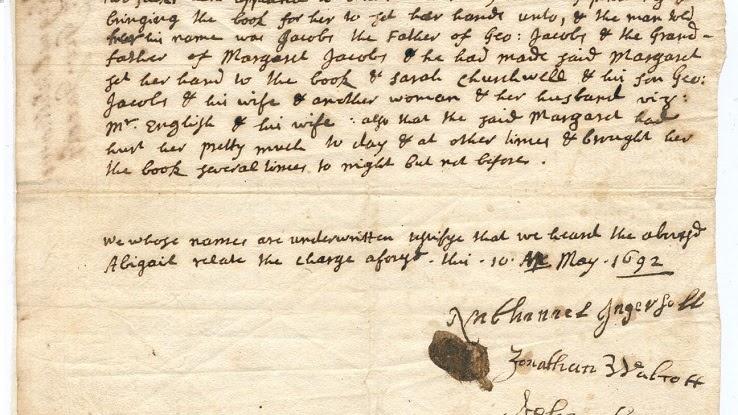 bringing the book for her to set her hands unto, & the man told
her his name was Jacobs the Father of Geo: Jacobs & the Grand-
father of Margaret Jacobs & he had made said Margaret
set her hand to the book & Sarah Churchwell & his son Geo:
Jacobs & his wife & another woman & her husband viz:
Mr. English & his wife : also that the said Margaret had
hurt her pretty much to day & at other times & brought her
the book several times to night but not before .
We whose names are underwritten testifye that we heard the abovesd
Abigail relate the charge aforesd . this . 10 . May . 1692
Nathanel Ingersoll
Jonathan Walcott